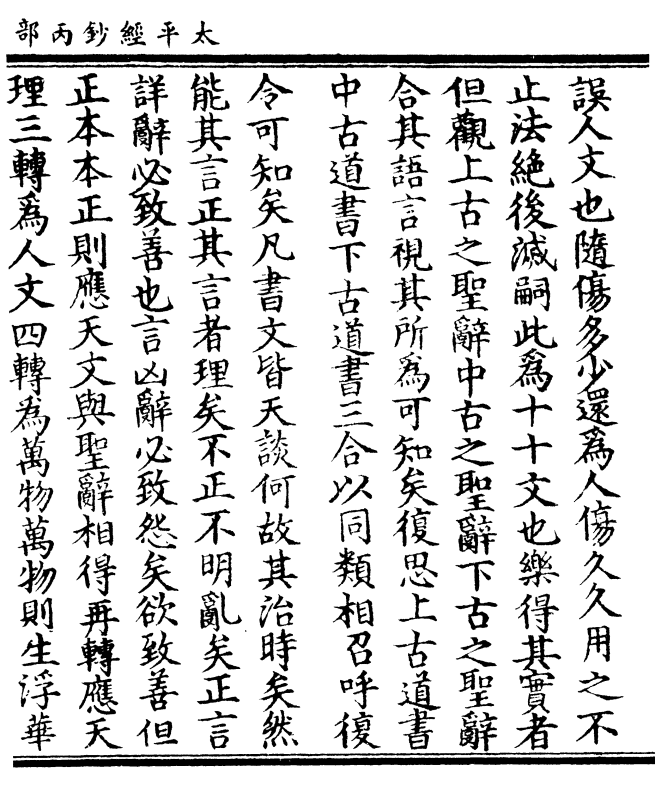 太平經鈔丙部
誤人文也隨傷多少還爲人傷久久用之不
止法絕後滅嗣此爲十十文也樂得其實者
但觀上古之聖辭中古之聖辭下古之聖辭
合其語言視其所爲可知矣復思上古道書
中古道書下古道書三合以同類相召呼復
令可知矣凡書文皆天談何故其治時矣然
能其言正其言者理矣不正不明亂矣正言
詳辭必致善也言凶辭必致怨矣欲致善但
正本本正則應天文與聖辭相得再轉應天
理三轉爲人文四轉爲萬物萬物則生浮華